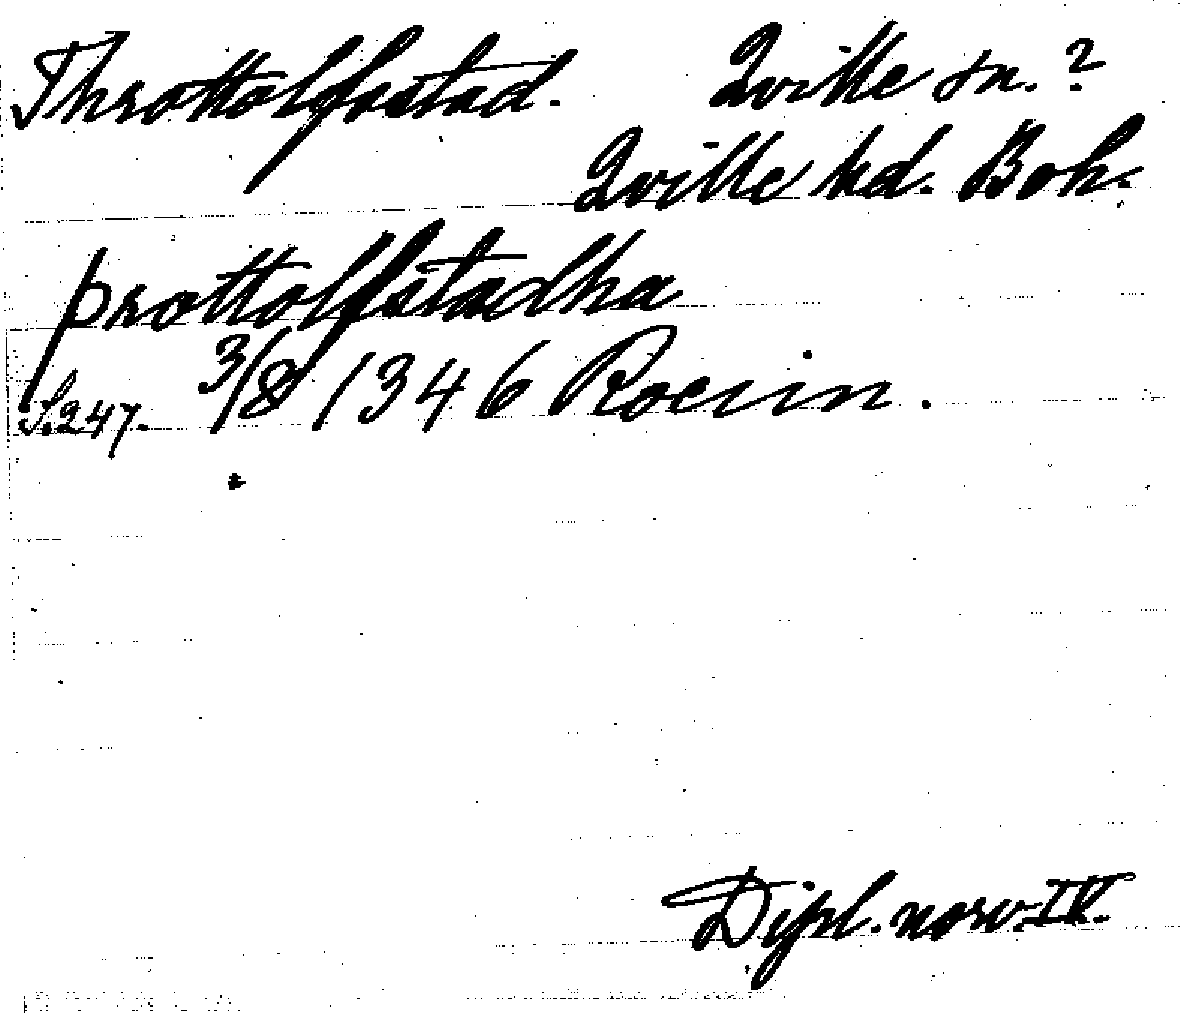 Throttolfsstad. Qville sn.?
Qville hd. Boh.
þrottolfstadha
S. 247. 3/8 1346 Rocun.
Dipl. norv. IV.